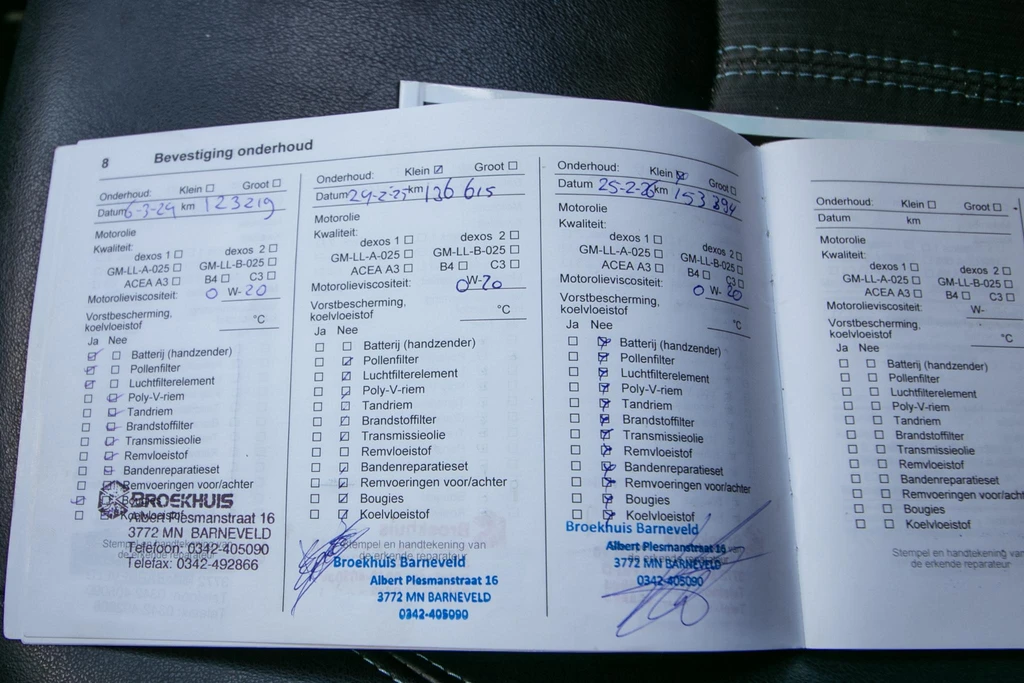 8 Bevestiging onderhoud
Onderhoud: Klein ☐ Groot ☐
Datum 6-3-24 km 123219
Motorolie
Kwaliteit:
dexos 1 ☐ dexos 2 ☐
GM-LL-A-025 ☐ GM-LL-B-025 ☐
ACEA A3 ☐ B4 ☐ C3 ☐
Motorolieviscositeit: 0 W- 20
Vorstbescherming,
koelvloeistof °C
Ja Nee
☑ ☐ Batterij (handzender)
☑ ☐ Pollenfilter
☑ ☐ Luchtfilterelement
☐ ☑ Poly-V-riem
☐ ☑ Tandriem
☐ ☑ Brandstoffilter
☐ ☑ Transmissieolie
☐ ☑ Remvloeistof
☐ ☑ Bandenreparatieset
☐ ☑ Remvoeringen voor/achter
☑ ☐ Bougies
☐ ☑ Koelvloeistof
BROEKHUIS
Albert Plesmanstraat 16
3772 MN BARNEVELD
Stempel en
de erkende reparateur
Telefoon: 0342-405090
Telefax: 0342-492866
Onderhoud: Klein ☑ Groot ☐
Datum 24-2-25 km 136 615
Motorolie
Kwaliteit:
dexos 1 ☐ dexos 2 ☐
GM-LL-A-025 ☐ GM-LL-B-025 ☐
ACEA A3 ☐ B4 ☐ C3 ☐
Motorolieviscositeit: 0 W- 20
Vorstbescherming,
koelvloeistof °C
Ja Nee
☐ ☐ Batterij (handzender)
☐ ☑ Pollenfilter
☐ ☑ Luchtfilterelement
☐ ☑ Poly-V-riem
☐ ☑ Tandriem
☐ ☑ Brandstoffilter
☐ ☑ Transmissieolie
☐ ☐ Remvloeistof
☐ ☑ Bandenreparatieset
☐ ☑ Remvoeringen voor/achter
☐ ☑ Bougies
☐ ☑ Koelvloeistof
Stempel en handtekening van
de erkende reparateur
Broekhuis Barneveld
Albert Plesmanstraat 16
3772 MN BARNEVELD
0342-405090
Onderhoud: Klein ☑ Groot ☐
Datum 25-2-26 km 153 894
Motorolie
Kwaliteit:
dexos 1 ☐ dexos 2 ☐
GM-LL-A-025 ☐ GM-LL-B-025 ☐
ACEA A3 ☐ B4 ☐ C3 ☐
Motorolieviscositeit: 0 W- 20
Vorstbescherming,
koelvloeistof °C
Ja Nee
☐ ☑ Batterij (handzender)
☐ ☑ Pollenfilter
☐ ☑ Luchtfilterelement
☐ ☑ Poly-V-riem
☐ ☑ Tandriem
☐ ☑ Brandstoffilter
☐ ☑ Transmissieolie
☐ ☑ Remvloeistof
☐ ☑ Bandenreparatieset
☐ ☑ Remvoeringen voor/achter
☐ ☑ Bougies
☐ ☑ Koelvloeistof
Broekhuis Barneveld
Albert Plesmanstraat 16
3772 MN BARNEVELD
0342-405090
Onderhoud: Klein ☐ Groot ☐
Datum km
Motorolie
Kwaliteit:
dexos 1 ☐ dexos 2 ☐
GM-LL-A-025 ☐ GM-LL-B-025 ☐
ACEA A3 ☐ B4 ☐ C3 ☐
Motorolieviscositeit: W-
Vorstbescherming,
koelvloeistof °C
Ja Nee
☐ ☐ Batterij (handzender)
☐ ☐ Pollenfilter
☐ ☐ Luchtfilterelement
☐ ☐ Poly-V-riem
☐ ☐ Tandriem
☐ ☐ Brandstoffilter
☐ ☐ Transmissieolie
☐ ☐ Remvloeistof
☐ ☐ Bandenreparatieset
☐ ☐ Remvoeringen voor/acht
☐ ☐ Bougies
☐ ☐ Koelvloeistof
Stempel en handtekening van
de erkende reparateur